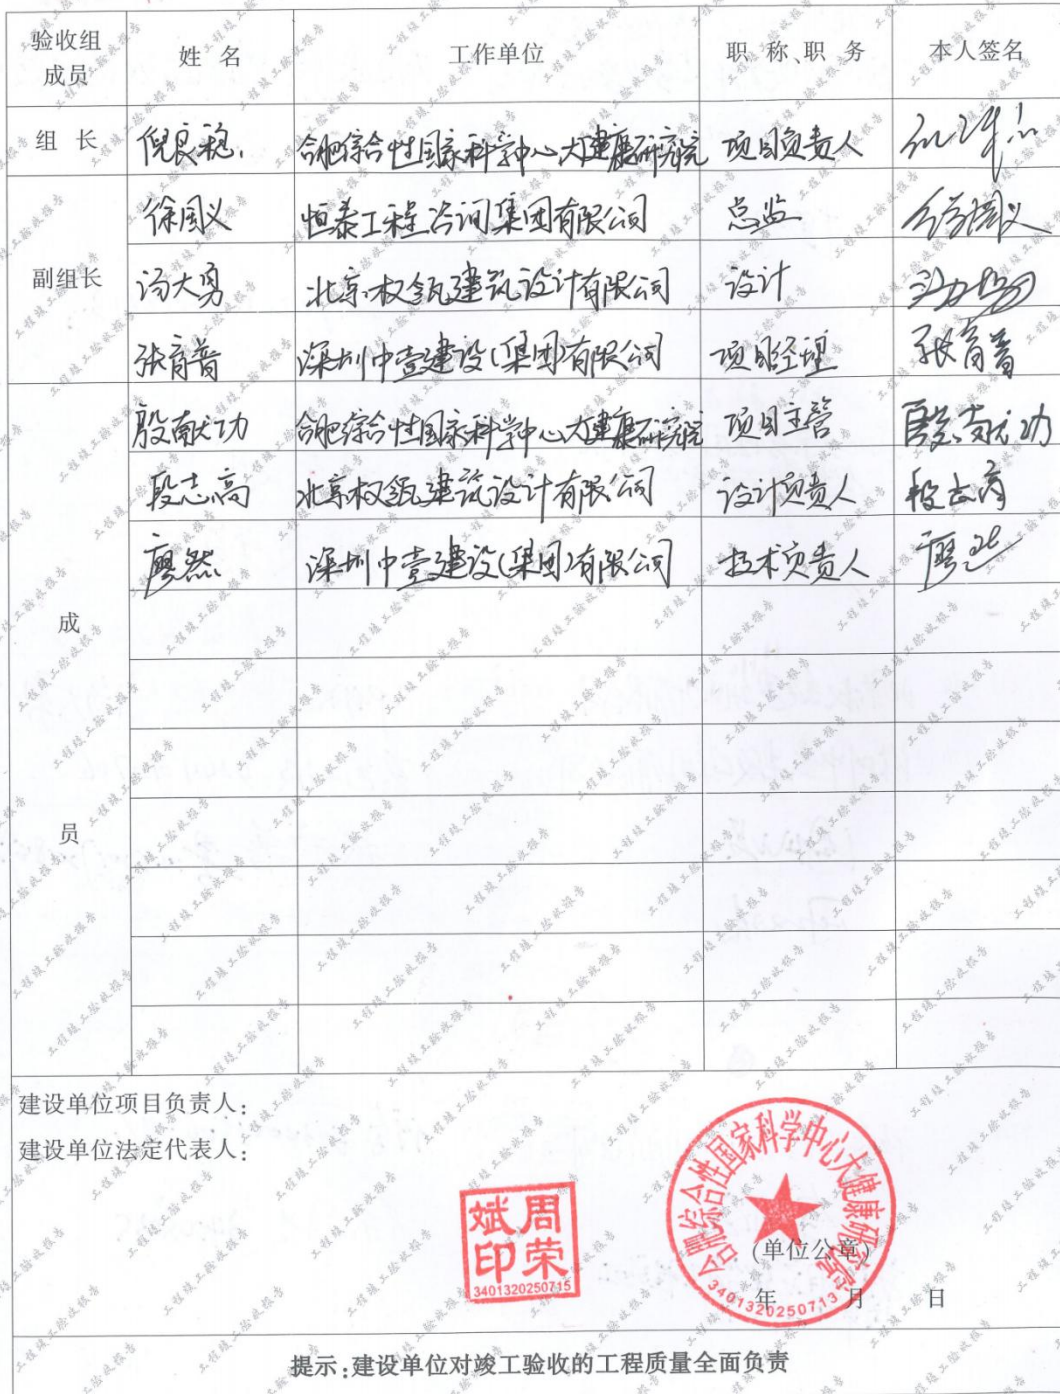 验收组成员 姓名 工作单位 职称、职务 本人签名
组长 倪良稳 合肥综合性国家科学中心大健康研究院 项目负责人
副组长 徐国义 恒泰工程咨询集团有限公司 总监 徐国义
汤大勇 北京权瓴建筑设计有限公司 设计 汤大勇
张育普 深圳中壹建设(集团)有限公司 项目经理 张育普
成员 殷献功 合肥综合性国家科学中心大健康研究院 项目主管 殷献功
段志高 北京权瓴建筑设计有限公司 设计负责人 段志高
廖然 深圳中壹建设(集团)有限公司 技术负责人 廖然
建设单位项目负责人:
建设单位法定代表人:
周荣斌印
3401320250715
合肥综合性国家科学中心大健康研究院
(单位公章)
3401320250713
年 月 日
提示:建设单位对竣工验收的工程质量全面负责
工程竣工验收报告